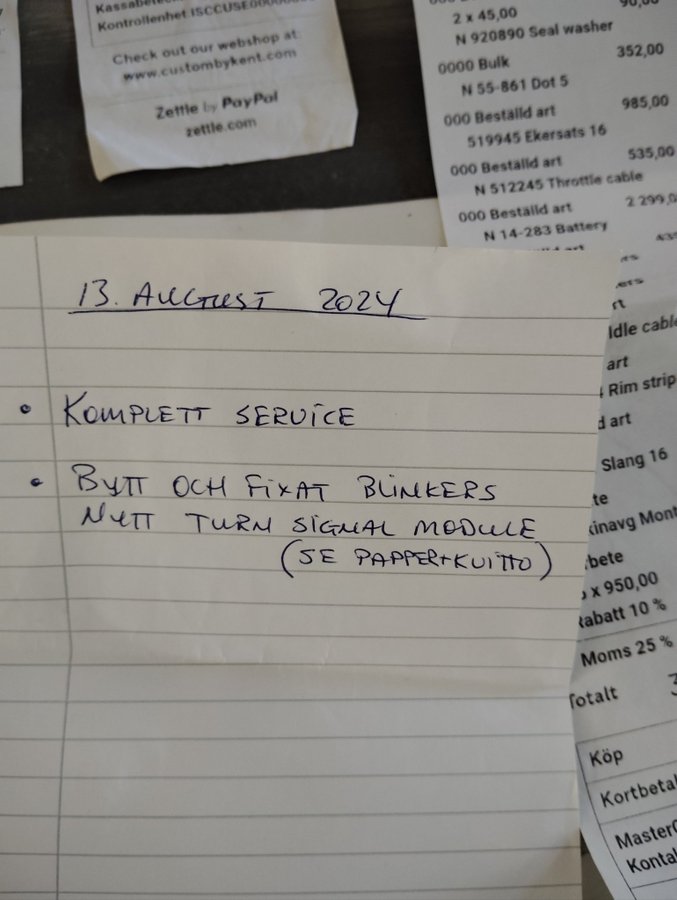 Kontrollenhet
Check out our webshop at
www.custombykent.com
Zettle by PayPal
zettle.com
2 x 45,00
N 920890 Seal washer
0000 Bulk 352,00
N 55-861 Dot 5
000 Beställd art 985,00
519945 Ekersats 16
000 Beställd art 535,00
N 512245 Throttle cable
000 Beställd art 2 299,0
N 14-283 Battery
art
Idle cable
art
Rim strip
d art
Slang 16
x 950,00
Rabatt 10 %
Moms 25 %
Totalt
Köp
Kortbetal
Master
Kontak
13. AUGUSTI 2024
• KOMPLETT SERVICE
• BYTT OCH FIXAT BLINKERS
NYTT TURN SIGNAL MODULE
(SE PAPPER+KVITTO)